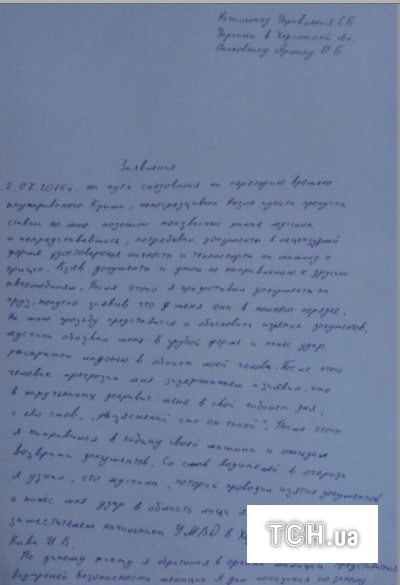 Начальнику Управления СБ
Украины в Херсонской обл.
Полковнику
Д.Б.
Заявление
2.07.2015г. на пути следования на территорию временно
оккупированного Крыма, непосредственно возле пункта пропуска
ко мне подошол неизвесный ранее мужчина
и непредставившись, потребовал документы в нецензурной
форме удостоверения личности и техпаспорта на машину и
прицеп. Взяв документы и ушол по направлению к другим
автомобилям. После этого я предоставил документы на
груз, попутно заявив что у меня они в полном порядке.
На мою прозьбу представится и обосновать изъятие документов,
мущина обозвал меня в грубой форме и нанёс удар
раскрытой ладонью в област моей головы. После этого
человек пригрозил мне задержанием и заявил, что
в наручниках доставит меня в свой кабинет для,
с его слов, „разяснений кто он такой". После этого
я направился в кабину своей машины и ожидал
возврата документов. Со слов водителей в очереди
я узнал, что мужчина, который проводил изятия документов
и нанёс мне удар в область лица
заместителем начальника УМВД в
Кива И В
По данному факту я обратился в органы милиции
внутреней безопасности милиции я дал показания по этому
ТСН.ua